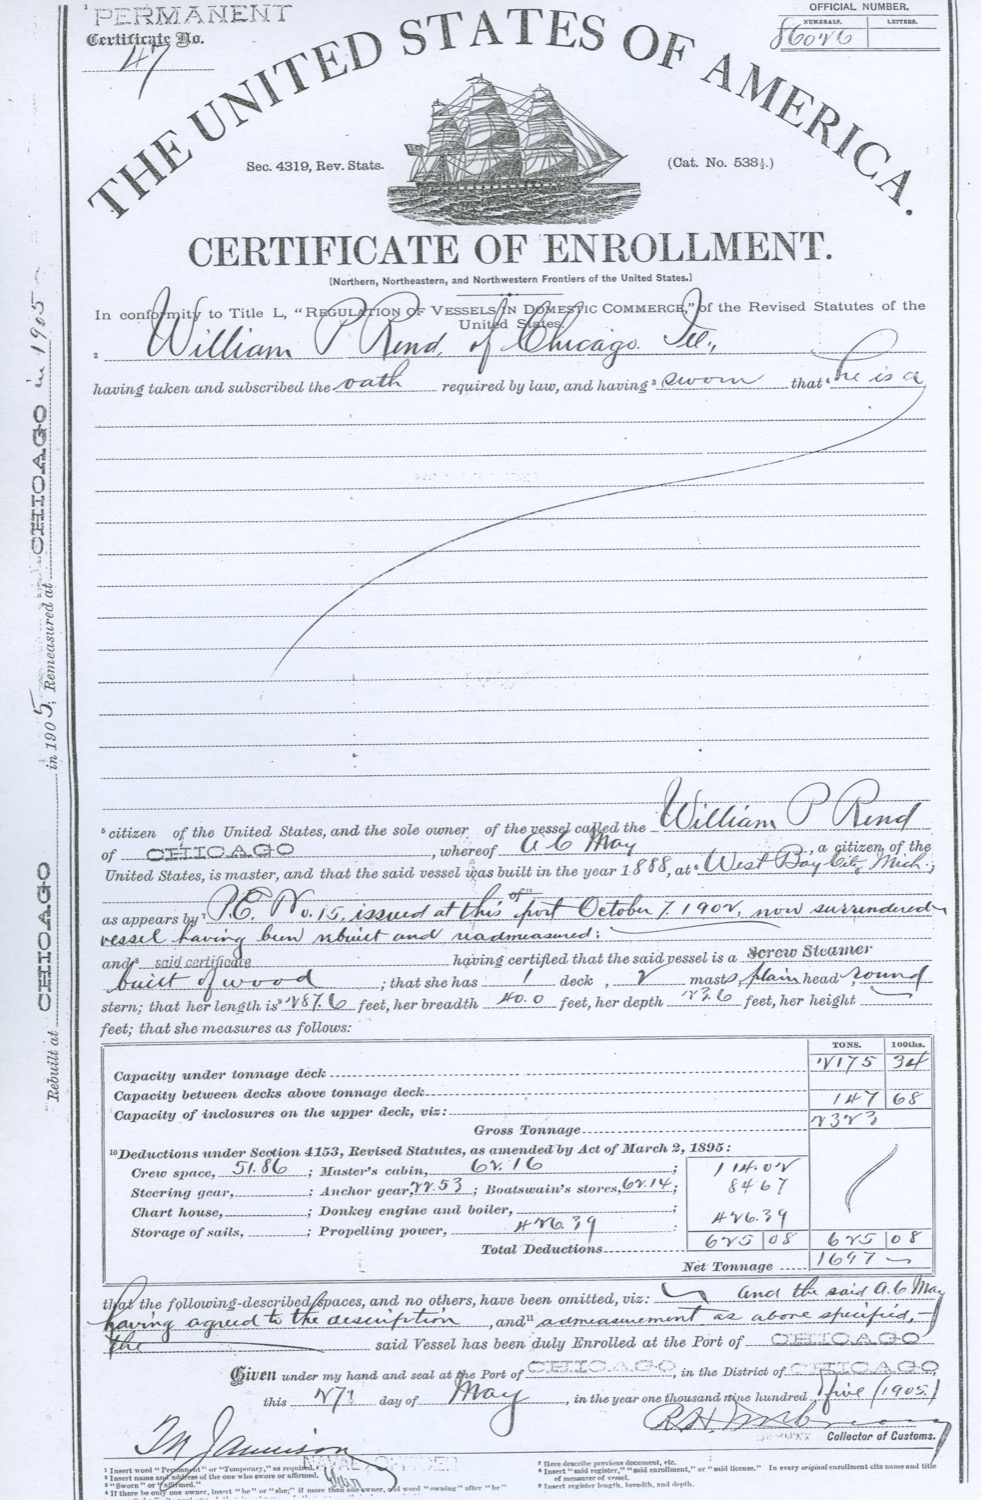 PERMANENT
Certificate No.
47
OFFICIAL NUMBER.
NUMERALS. LETTERS.
86026
THE UNITED STATES OF AMERICA.
Sec. 4319, Rev. Stats. (Cat. No. 538½.)
CERTIFICATE OF ENROLLMENT.
[Northern, Northeastern, and Northwestern Frontiers of the United States.]
In conformity to Title L, "REGULATION OF VESSELS IN DOMESTIC COMMERCE," of the Revised Statutes of the
United States,
2 William P Rend, of Chicago Ill,
having taken and subscribed the oath required by law, and having 3 sworn that 4 he is a
5 citizen of the United States, and the sole owner of the vessel called the William P Rend
of CHICAGO, whereof A C May, a citizen of the
United States, is master, and that the said vessel was built in the year 1888, at 6 West Bay City, Mich.;
as appears by 7 P.E. No. 15, issued at this port October 7, 1902, now surrendered
vessel having been rebuilt and readmeasured;
and 8 said certificate having certified that the said vessel is a Screw Steamer
built of wood; that she has 1 deck, 2 masts, plain head, round
stern; that her length is 9 287.6 feet, her breadth 40.0 feet, her depth 23.6 feet, her height
feet; that she measures as follows:
TONS. 100ths.
Capacity under tonnage deck 2175 34
Capacity between decks above tonnage deck
Capacity of inclosures on the upper deck, viz: 147 68
Gross Tonnage 2323
10 Deductions under Section 4153, Revised Statutes, as amended by Act of March 2, 1895:
Crew space, 51.86; Master's cabin, 62.16; 114.02
Steering gear, ; Anchor gear, 22.53; Boatswain's stores, 62.14; 84 67
Chart house, ; Donkey engine and boiler, ;
Storage of sails, ; Propelling power, 426.39; 426.39
Total Deductions 625 08 625 08
Net Tonnage 1697
that the following-described spaces, and no others, have been omitted, viz: and the said A. C May
having agreed to the description, and 11 admeasurement as above specified,
the said Vessel has been duly Enrolled at the Port of CHICAGO
Given under my hand and seal at the Port of CHICAGO, in the District of CHICAGO,
this 27th day of May, in the year one thousand nine hundred five (1905)
DEPUTY Collector of Customs.
NAVAL OFFICER
1 Insert word "Permanent" or "Temporary," as required.
2 Insert name and address of the one who swore or affirmed.
3 "Sworn" or "affirmed."
4 If there be only one owner, insert "he" or "she;" if more than one owner, add word "owning" after "he"
7 Here describe previous document, etc.
8 Insert "said register," "said enrollment," or "said license." In every original enrollment cite name and title
of measurer of vessel.
9 Insert register length, breadth, and depth.
Rebuilt at CHICAGO in 1905, Remeasured at CHICAGO in 1905